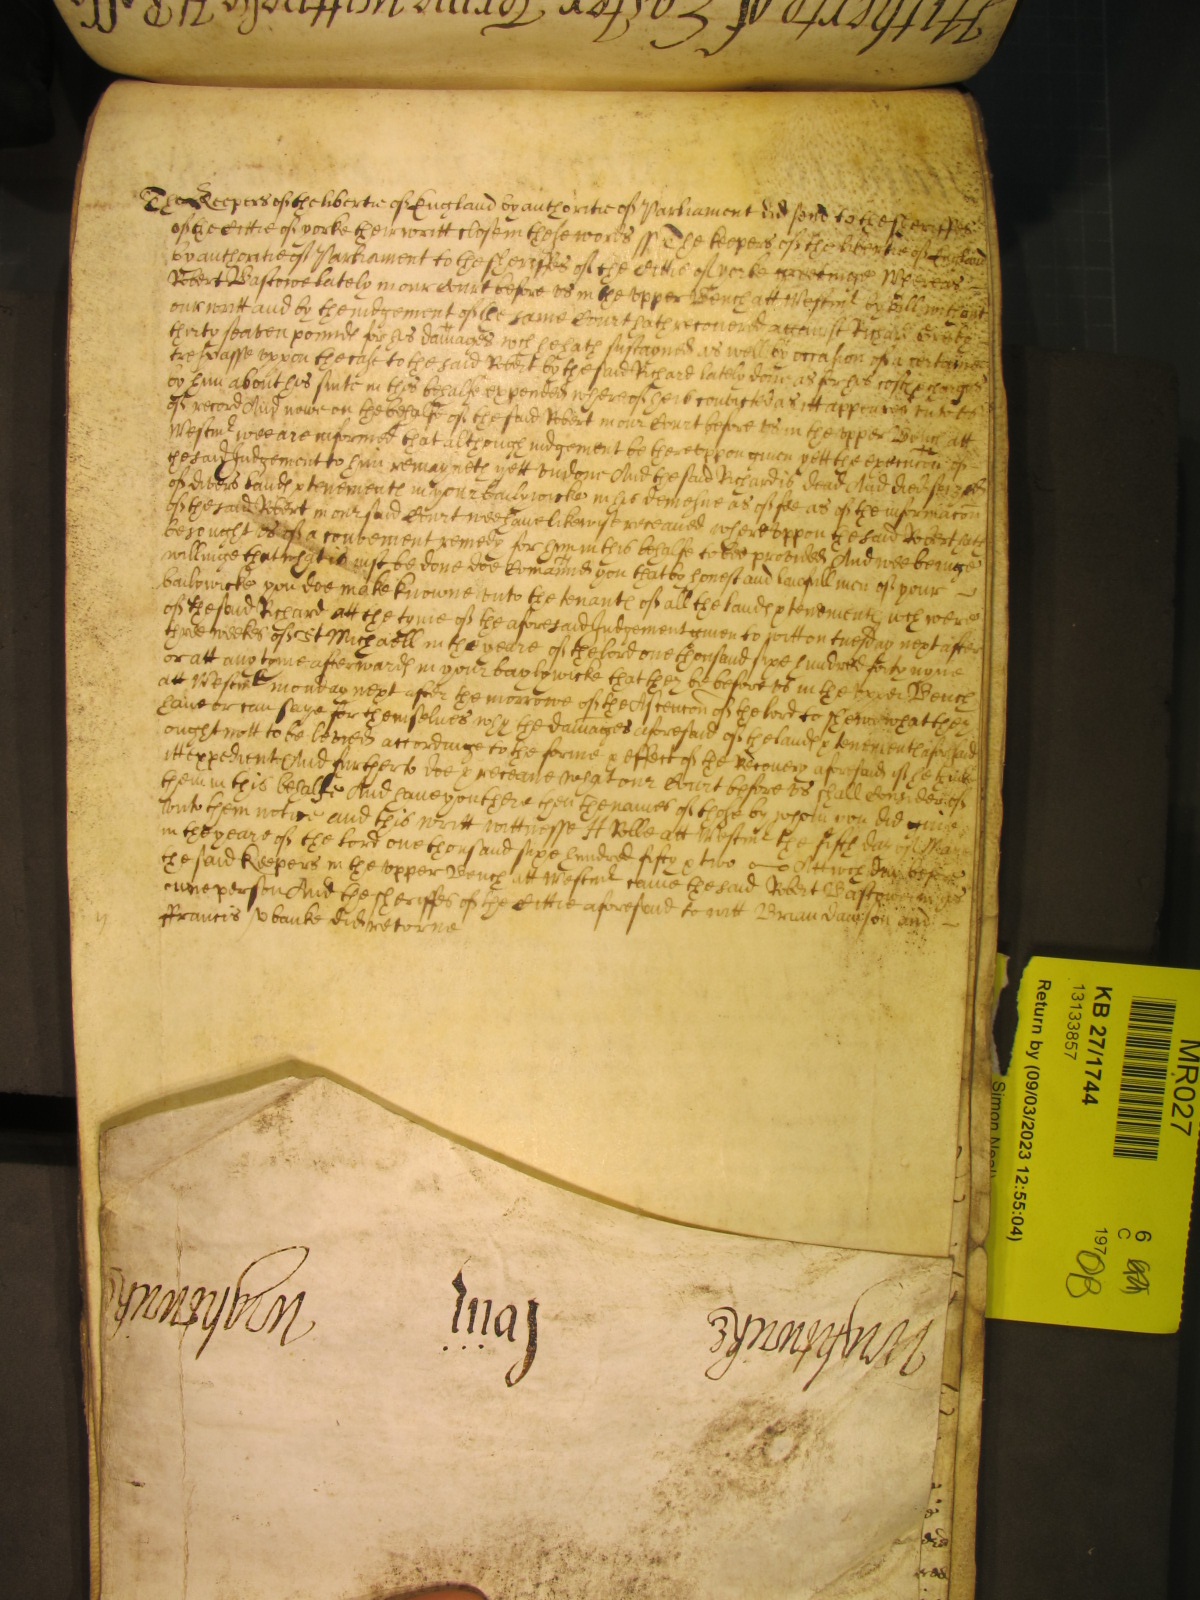 Hitherto of Easter Terme wittnesse H Rolle
The Keepers of the libertie of England by authoritie of Parliament did send to the sheriffes
of the Cittie of yorke their writt close in these words ss The keepers of the libertie of England
by authoritie of Parliament to the sheriffes of the Cittie of yorke greetinge Whereas
Robert Bastowe lately in our Court before us in the upper Bench att Westm̃ by bill without
our writt and by the iudgement of the same Court hath recovered against Richard
thirty seaven pounds for his damages wch he hath sustayned as well by occasion of a certayne
trespasse uppon the case to the said Robert by the said Richard lately done as for his costs & charges
by him about his suite in this behalfe expended whereof he is convicted as itt appeares unto us
of record And nowe on the behalfe of the said Robert in our Court before us in the upper Bench att
Westm̃ wee are informed that although iudgement be thereuppon given yett the execucõn of
the said Judgement to him remayneth yett undone And the said Richard is dead And died seized
of divers lands & tenements in your bailywicke in his demesne as of fee as of the informacõn
of the said Robert in our said Court wee have likewise receaved whereuppon the said Robert hath
besought us of a convenient remedy for him in this behalfe to bee provided And wee beinge
willinge that what is iust be done doe com̃aund you that by honest and lawfull men of your
bailywicke you doe make knowne unto the tenants of all the lands & tenements wch were
of the said Richard att the tyme of the aforesaid Judgement given to witt on tuesday next after
three weekes of St Michaell in the yeare of the lord one thousand sixe hundred forty nyne
or att any tyme afterwards in your baylywicke that they be before us in the upper Bench
att Westm̃ monday next after the morrowe of the Ascencõn of the lord to shew what they
have or can saye for themselves why the damages aforesaid of the lands & tenements aforesaid
ought nott to be levied accordinge to the forme & effect of the recovery aforesaid if they
itt expedient And further to doe & receave what our Court before us shall consider of
them in this behalfe And have you there then the names of those by whom you did give
unto them notice and this writt wittnesse H Rolle att Westm̃ the fifth day of
in the yeare of the lord one thousand sixe hundred fifty & two Att wch day before
the said Keepers in the upper Bench att Westm̃ came the said Robert Bastowe in his
owne person And the sheriffes of the Cittie aforesaid to witt Brian Dawson and
ffrancis Ubanke did retorne
Wightwicke
Wightwicke
MR027
KB 27/1744
13133857
Return by (09/03/2023 12:55:04)
6
C
197